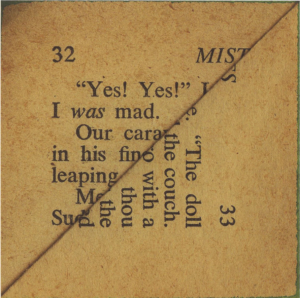 32 MIST
"Yes! Yes!" I
I was mad.
Our cara
in his fin
leaping
Me
Su
33
"The doll
the couch.
o with a
thou
the
d